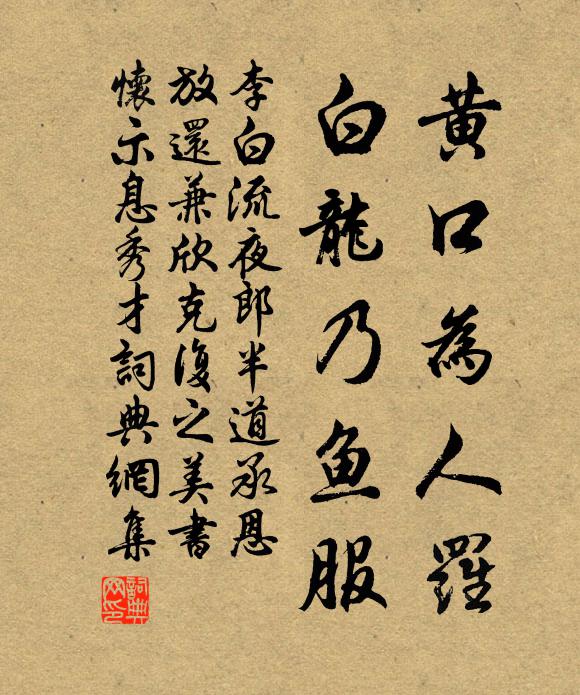 黃口為人羅
白龍乃魚服
李白流夜郎半道承恩
放還兼欣克復之美書
懷示息秀才詞典網集
詞典
网印